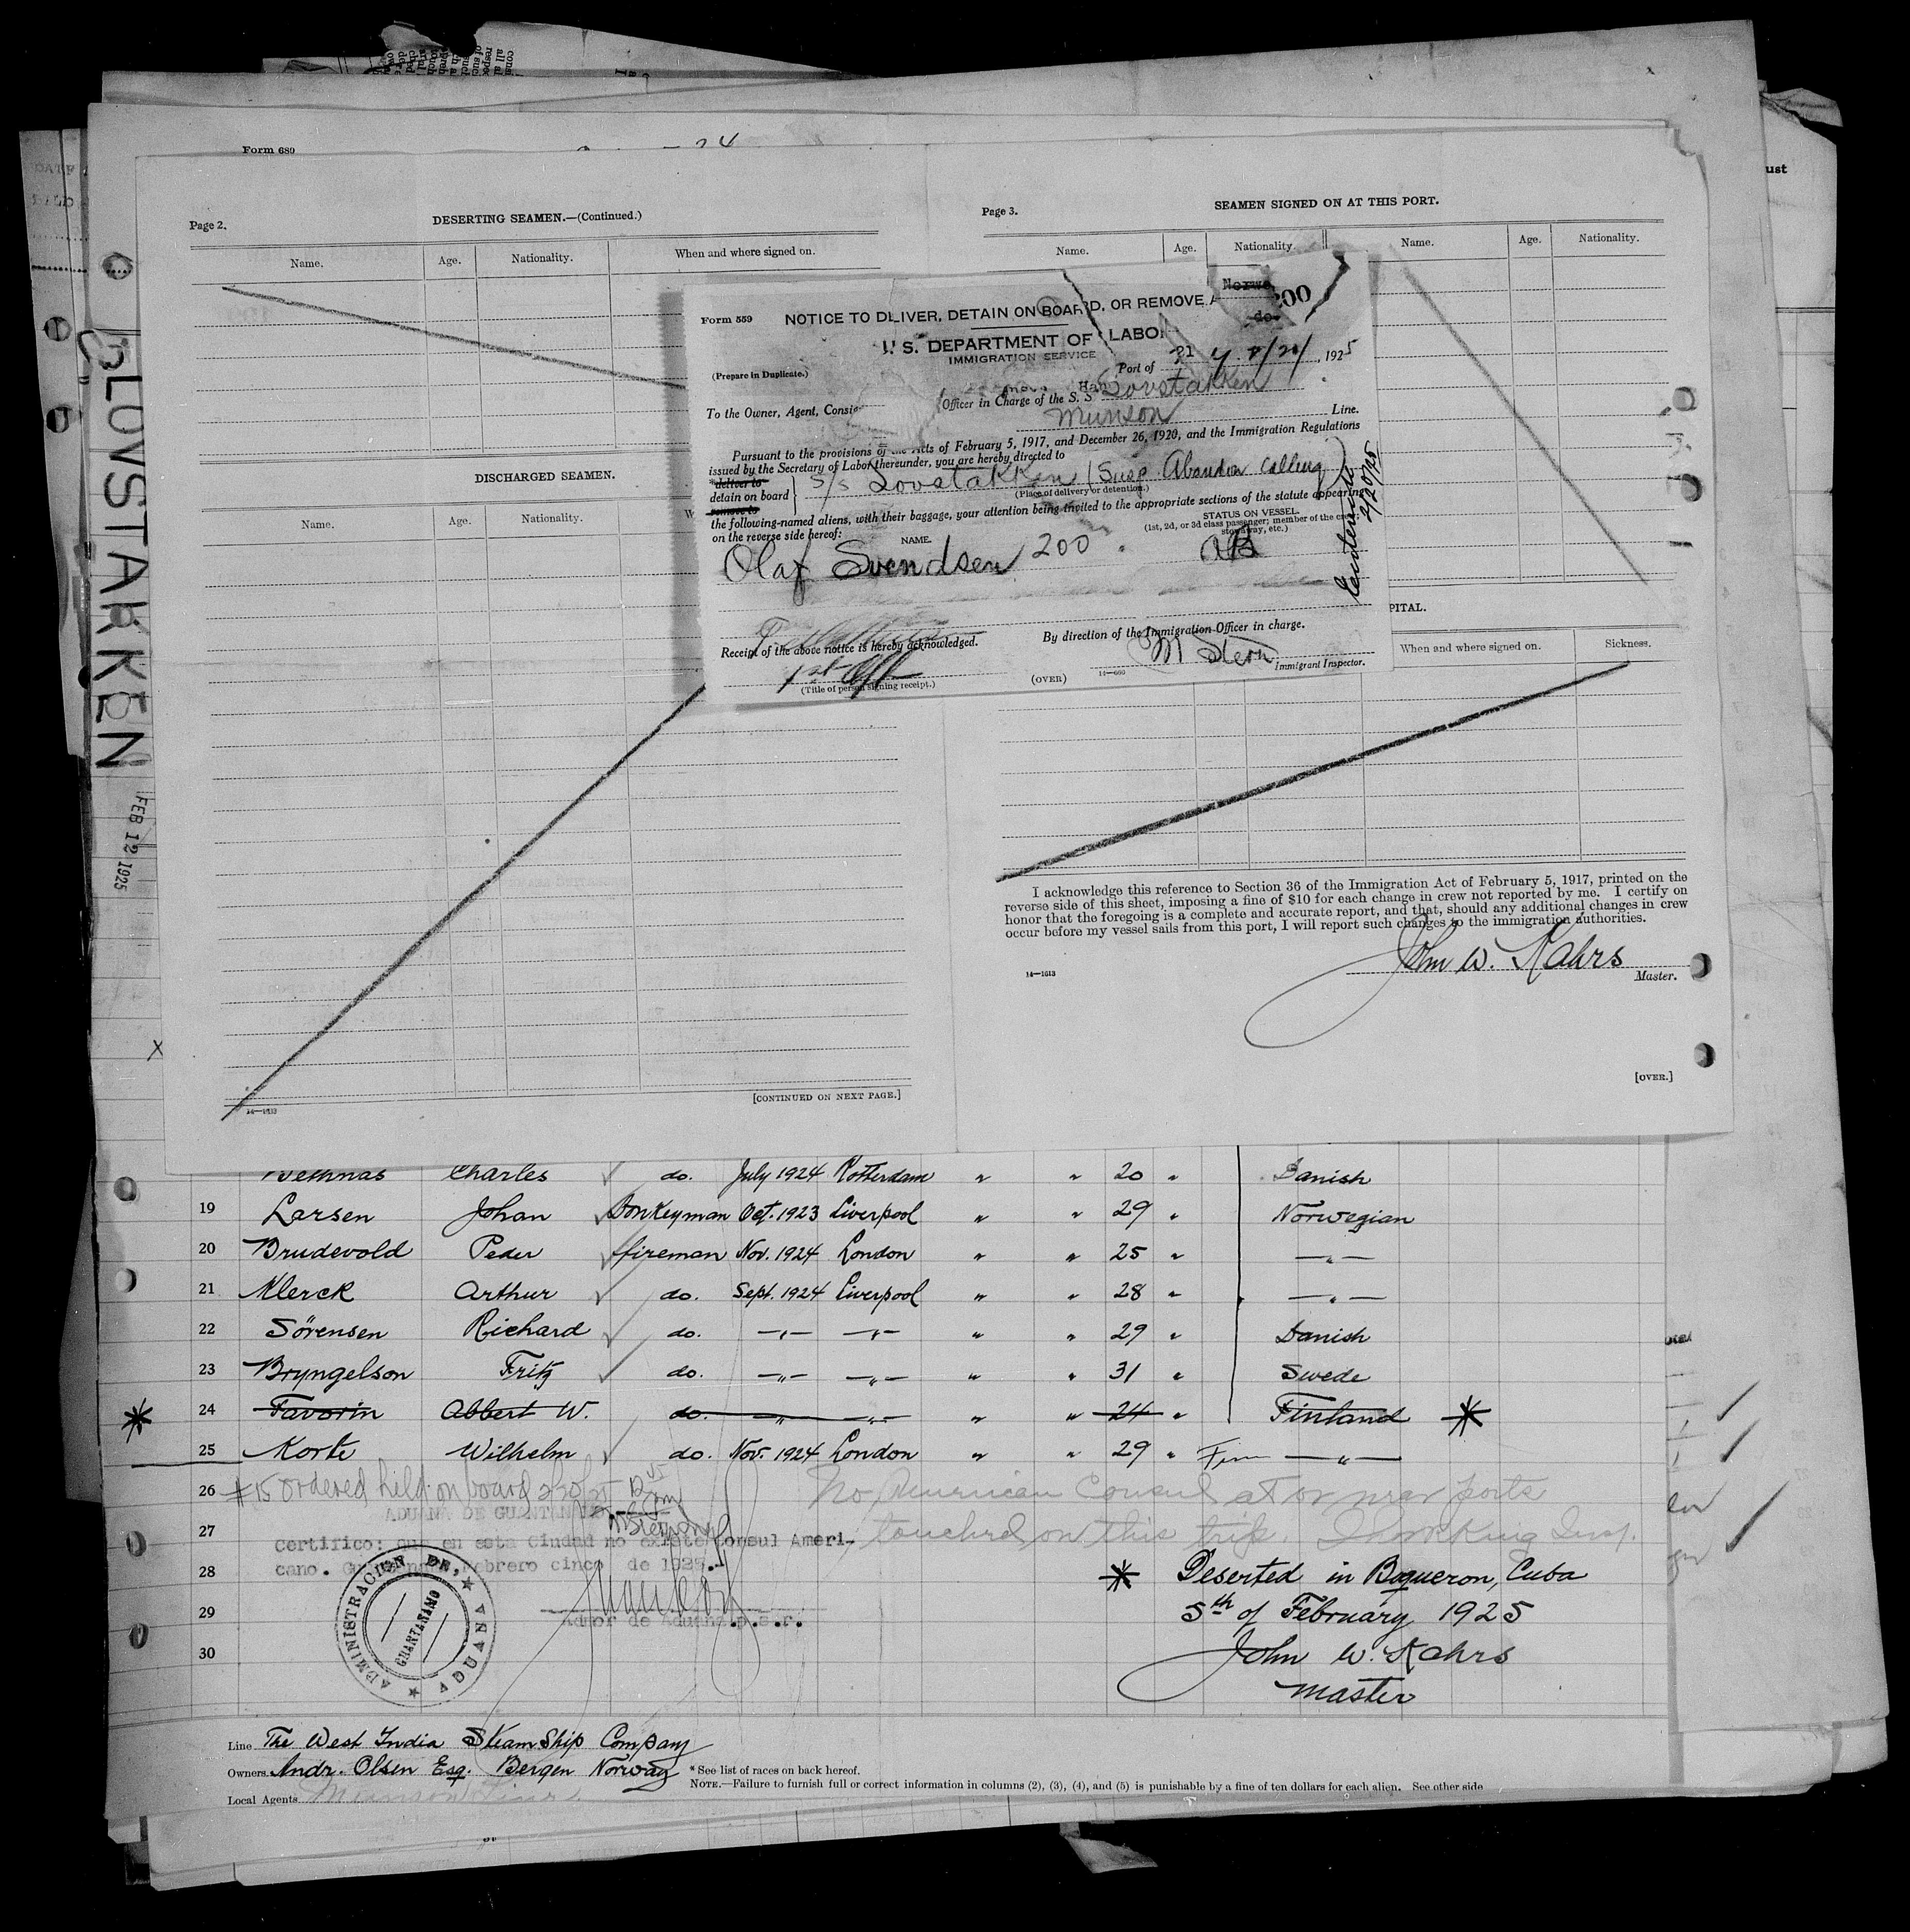 Form 680
LOVSTAKKEN
FEB 12 1925
Page 2.
DESERTING SEAMEN.—(Continued.)
Name. Age. Nationality. When and where signed on.
DISCHARGED SEAMEN.
Name. Age. Nationality.
[CONTINUED ON NEXT PAGE.]
Page 3.
SEAMEN SIGNED ON AT THIS PORT.
Name. Age. Nationality. Name. Age. Nationality.
PITAL.
When and where signed on. Sickness.
Form 559
NOTICE TO DELIVER, DETAIN ON BOARD, OR REMOVE
200
U. S. DEPARTMENT OF LABOR
IMMIGRATION SERVICE
(Prepare in Duplicate.)
Port of N.Y. 2/20/, 1925
To the Owner, Agent, Consig
Officer in Charge of the S. S. Lovstakken
Munson Line.
Pursuant to the provisions of the Acts of February 5, 1917, and December 26, 1920, and the Immigration Regulations
issued by the Secretary of Labor thereunder, you are hereby directed to
*deliver to
detain on board
remove to
S/S Lovstakken (Susp. Abandon Calling)
(Place of delivery or detention.)
the following-named aliens, with their baggage, your attention being invited to the appropriate sections of the statute appearing
on the reverse side hereof:
NAME.
STATUS ON VESSEL.
(1st, 2d, or 3d class passenger; member of the crew,
stowaway, etc.)
Olaf Svendsen 200 AB
2/20/25
Receipt of the above notice is hereby acknowledged.
1st Off
(Title of person signing receipt.)
By direction of the Immigration Officer in charge.
M Stern
Immigrant Inspector.
(OVER)
14—660
I acknowledge this reference to Section 36 of the Immigration Act of February 5, 1917, printed on the
reverse side of this sheet, imposing a fine of $10 for each change in crew not reported by me. I certify on
honor that the foregoing is a complete and accurate report, and that, should any additional changes in crew
occur before my vessel sails from this port, I will report such changes to the immigration authorities.
John W. Kahrs
Master.
14—1613
[OVER.]
Charles do. July 1924 Rotterdam " " 20 " Danish
19 Larsen Johan Donkeyman Oct. 1923 Liverpool " " 29 " Norwegian
20 Brudevold Peder fireman Nov. 1924 London " " 25 " —"—
21 Klerck Arthur do. Sept. 1924 Liverpool " " 28 " —"—
22 Sörensen Richard do. —"— —"— " " 29 " Danish
23 Bryngelson Fritz do. —"— —"— " " 31 " Swede
* 24 Favorin Abbert W. do. —"— —"— " " 24 " Finland *
25 Korte Wilhelm do. Nov. 1924 London " " 29 " Finn —"—
26 #15 ordered held on board 2/20/25
No American Consul at or near ports
ADUANA DE GUANTANAMO
27
touched on this trip. Insp.
Certifico: que en esta Ciudad no existe Consul Ameri-
cano. Guantanamo Febrero cinco de 1925.
28
* Deserted in Boqueron, Cuba
29
5th of February 1925
Admor de Aduana p.s.r.
30
John W. Kahrs
Master
ADMINISTRACION DE ADUANA
GUANTANAMO
Line The West India SteamShip Company
Owners Andr. Olsen Esq. Bergen Norway
Local Agents Munson Line
* See list of races on back hereof.
NOTE.—Failure to furnish full or correct information in columns (2), (3), (4), and (5) is punishable by a fine of ten dollars for each alien. See other side